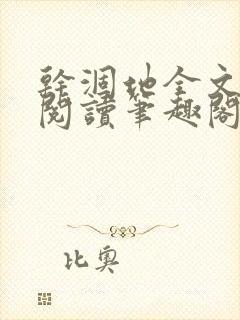 幹涸地全文
閱讀筆趣閣
比奧